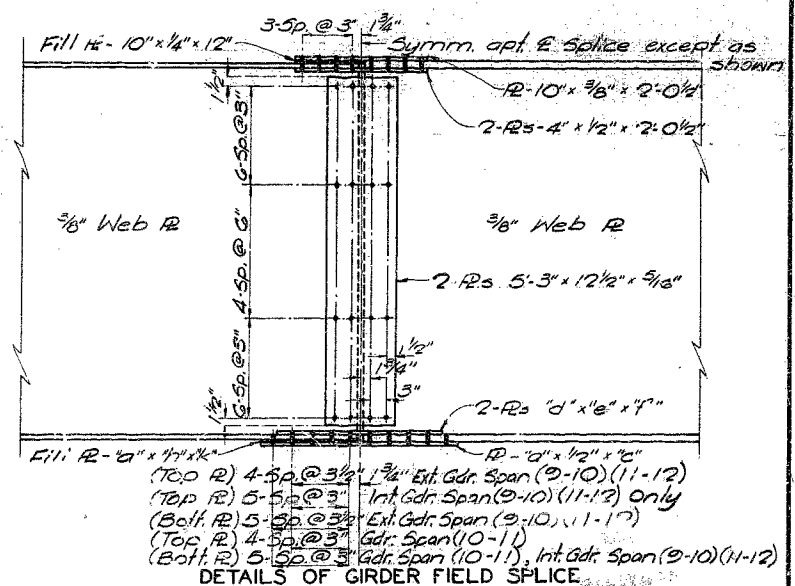 3-Sp. @ 3" 1¾"
Fill ℞ - 10" x ¼" x 12"
Symm. abt. ℄ Splice except as
shown
℞-10" x ⅜" x 2'-0½"
2-℞s-4" x ½" x 2'-0½"
1½"
6-Sp. @ 3"
⅜" Web ℞
⅜" Web ℞
4-Sp. @ 6"
2-℞s 5'-3" x 12½" x 5/16"
6-Sp. @ 3"
1½"
1¾"
3"
1½"
2-℞s "d" x "e" x "f"
Fill ℞-"a" x "h" x "k"
℞-"a" x ½" x "c"
(Top ℞) 4-Sp. @ 3½" 1¾" Ext. Gdr. Span (9-10)(11-12)
(Top ℞) 5-Sp. @ 3" Int. Gdr. Span (9-10)(11-12) Only
(Bott. ℞) 5-Sp. @ 3½" Ext. Gdr. Span (9-10)(11-12)
(Top ℞) 4-Sp. @ 3" Gdr. Span (10-11)
(Bott. ℞) 5-Sp. @ 3" Gdr. Span (10-11), Int. Gdr. Span (9-10)(11-12)
DETAILS OF GIRDER FIELD SPLICE